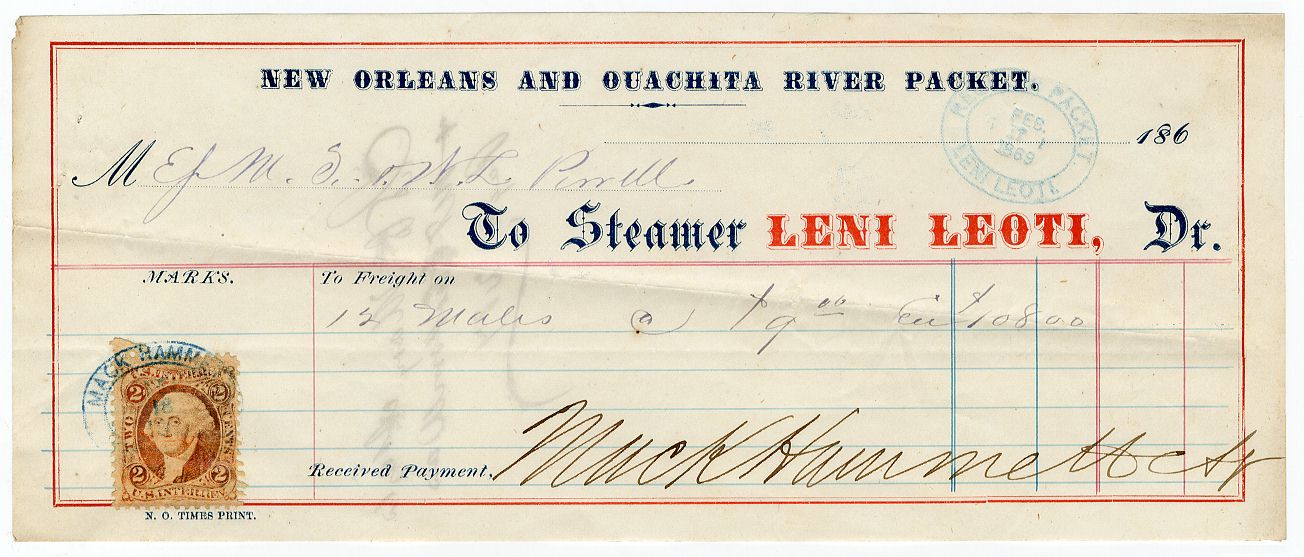 NEW ORLEANS AND OUACHITA RIVER PACKET.
PACKET
FEB.
1869
LENI LEOTI.
186
M
To Steamer LENI LEOTI, Dr.
MARKS. To Freight on
12 Mules @ $9 00 $108 00
MACK HAMM
18
U.S. INTER.REV.
2 2
TWO CENTS
2 2
U.S. INTER.REV.
Received Payment, Mack Hammett
N. O. TIMES PRINT.